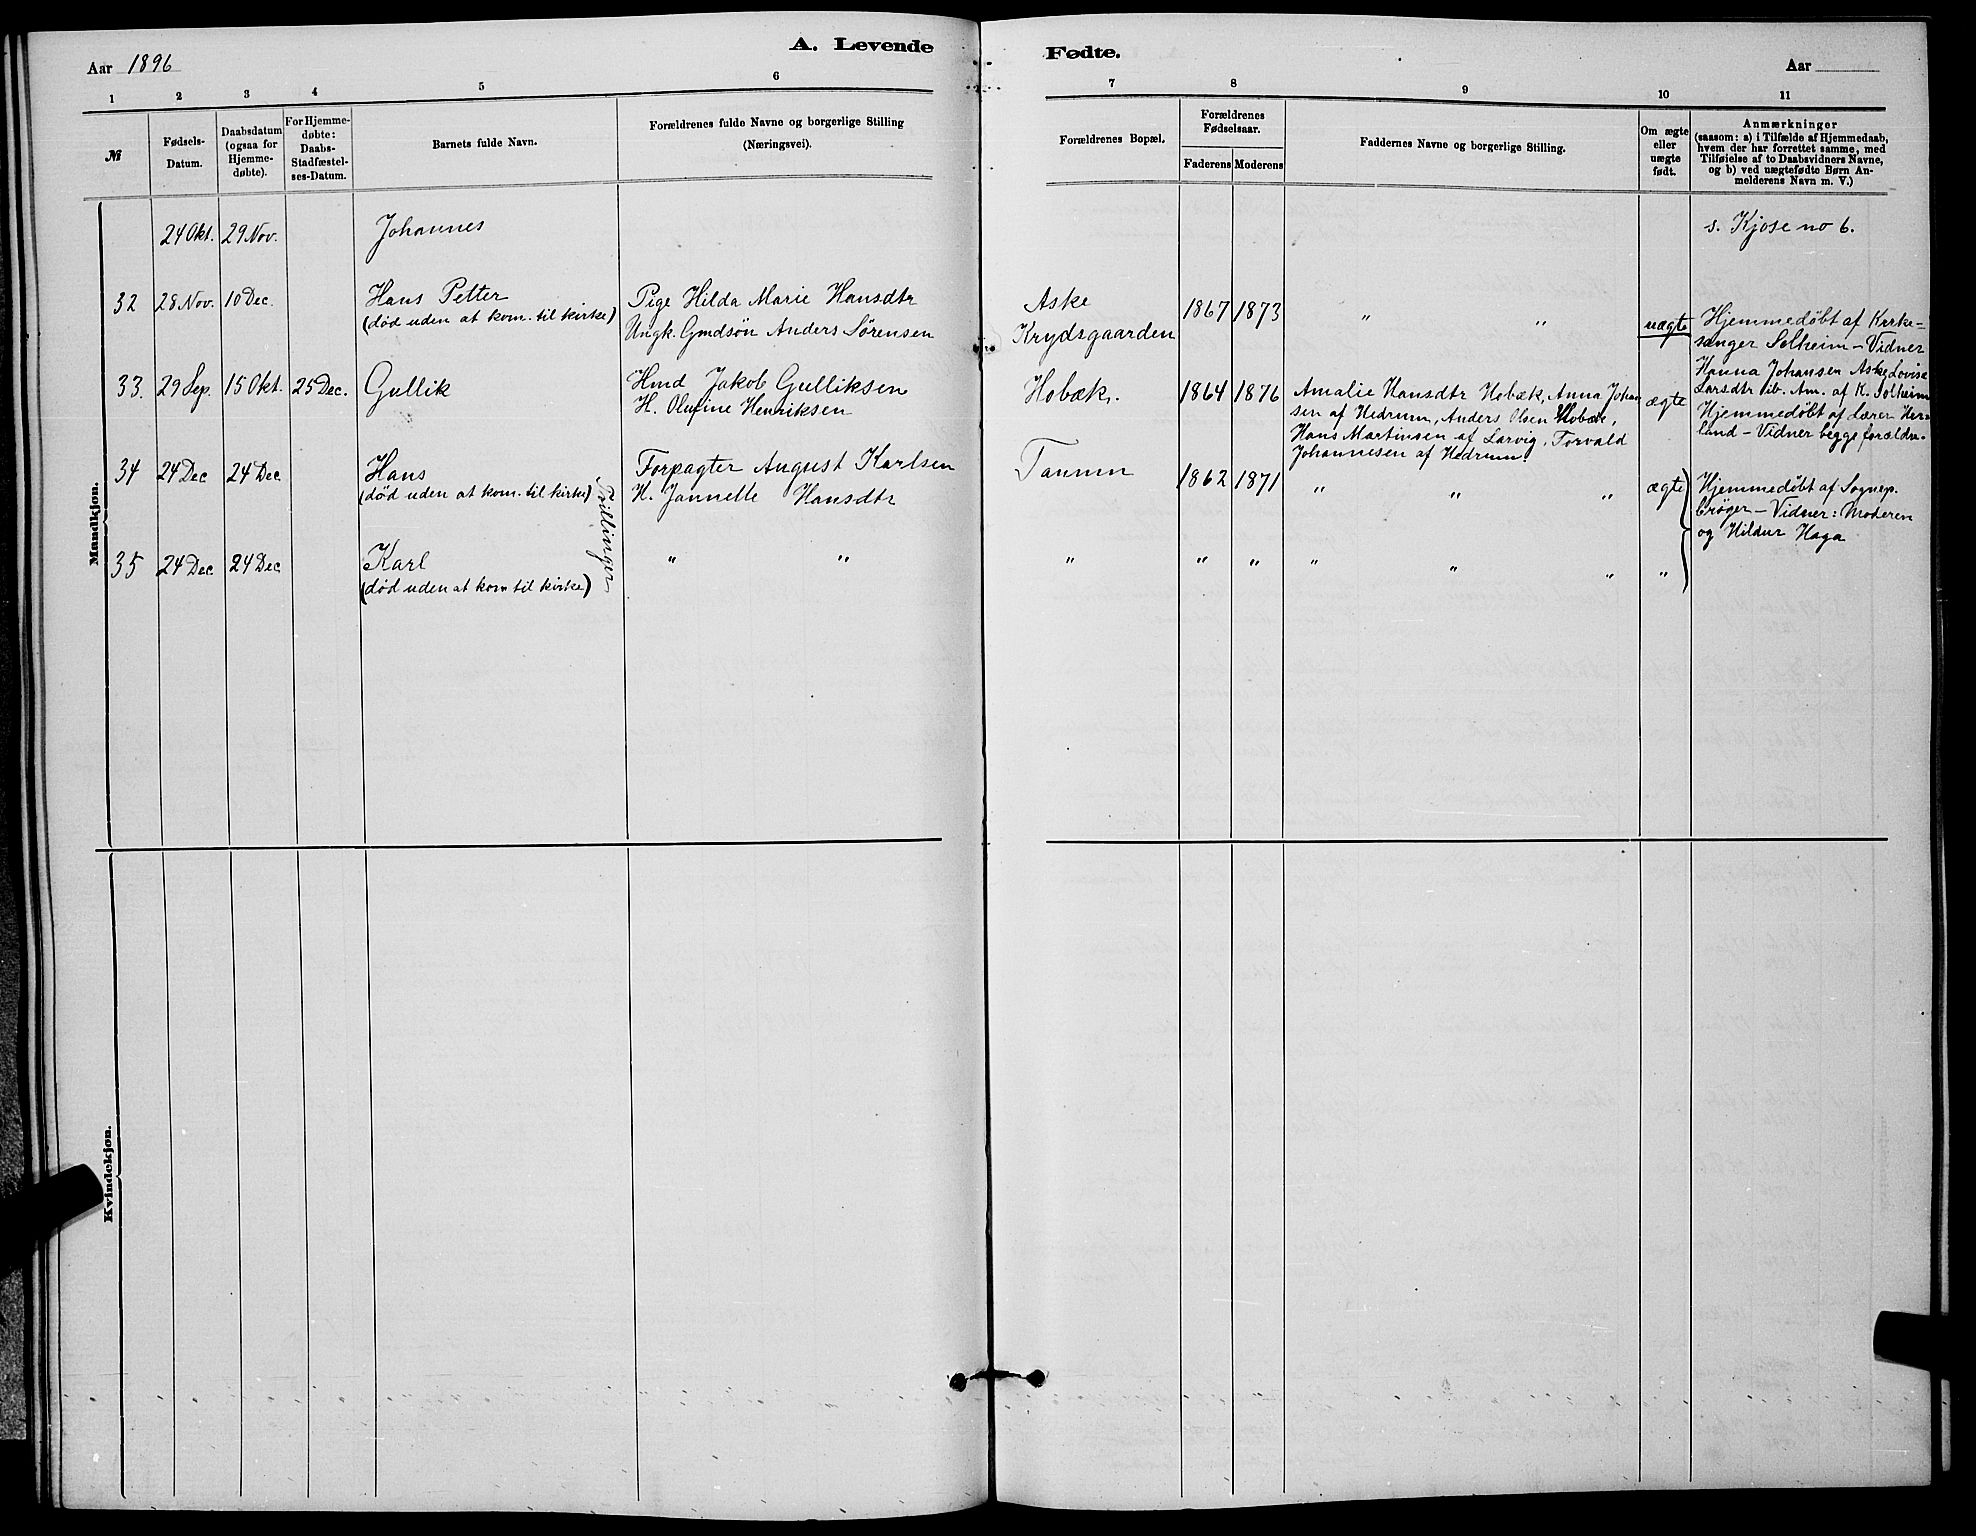 A. Levende
Aar 1896
1 2 3 4 5 6
№
Fødsels-
Datum.
Daabsdatum
(ogsaa for
Hjemme-
døbte).
For Hjemme-
døbte:
Daabs-
Stadfæstel-
ses-Datum.
Barnets fulde Navn.
Forældrenes fulde Navne og borgerlige Stilling
(Næringsvei).
Mandkjøn.
24 Okt. 29 Nov. Johannes
32 28 Nov. 10 Dec. Hans Petter
(død uden at kom. til kirke)
Pige Hilda Marie Hansdtr
Ungk. Gmdsøn Anders Sørensen
33. 29 Sep. 15 Okt. 25 Dec. Gullik
Hmd Jakob Gulliksen
H. Olufine Henriksen
34 24 Dec 24 Dec Hans
(død uden at kom. til kirke)
Forpagter August Karlsen
H. Jannette Hansdtr
Tvillinger
35 24 Dec 24 Dec Karl " "
(død uden at kom til kirke)
Kvindekjøn.
Fødte.
Aar
7 8 9 10 11
Forældrenes Bopæl.
Forældrenes
Fødselsaar.
Faderens Moderens
Faddernes Navne og borgerlige Stilling.
Om ægte
eller
uægte
født.
Anmærkninger
(saasom: a) i Tilfælde af Hjemmedaab,
hvem der har forrettet samme, med
Tilføielse af to Daabsvidners Navne,
og b) ved uægtefødte Børn An-
melderens Navn m. V.)
s. Kjose no 6.
Aske
Krydsgaarden
1867 1873 " " uægte
Hjemmedøbt af Kirke-
sanger Solheim - Vidner
Hanna Johansen Aske, Lovise
Larsdtr ib. Am. af K. Solheim
Hobæk. 1864 1876
Amalie Hansdtr Hobæk, Anna Johan
sen af Hedrum, Anders Olsen Hobæk,
Hans Martinsen af Larvig, Torvald
Johannesen af Hedrum.
ægte
Hjemmedøbt af Lærer Her-
land - Vidner begge forældre.
Tanum 1862 1871 " " " ægte
Hjemmedøbt af Sognep.
Crøger - Vidner: Moderen
og Hildur Haga
" " " " " " "